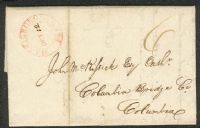 6
John McKissick Esq Cashr
Columbia Bridge Co
Columbia